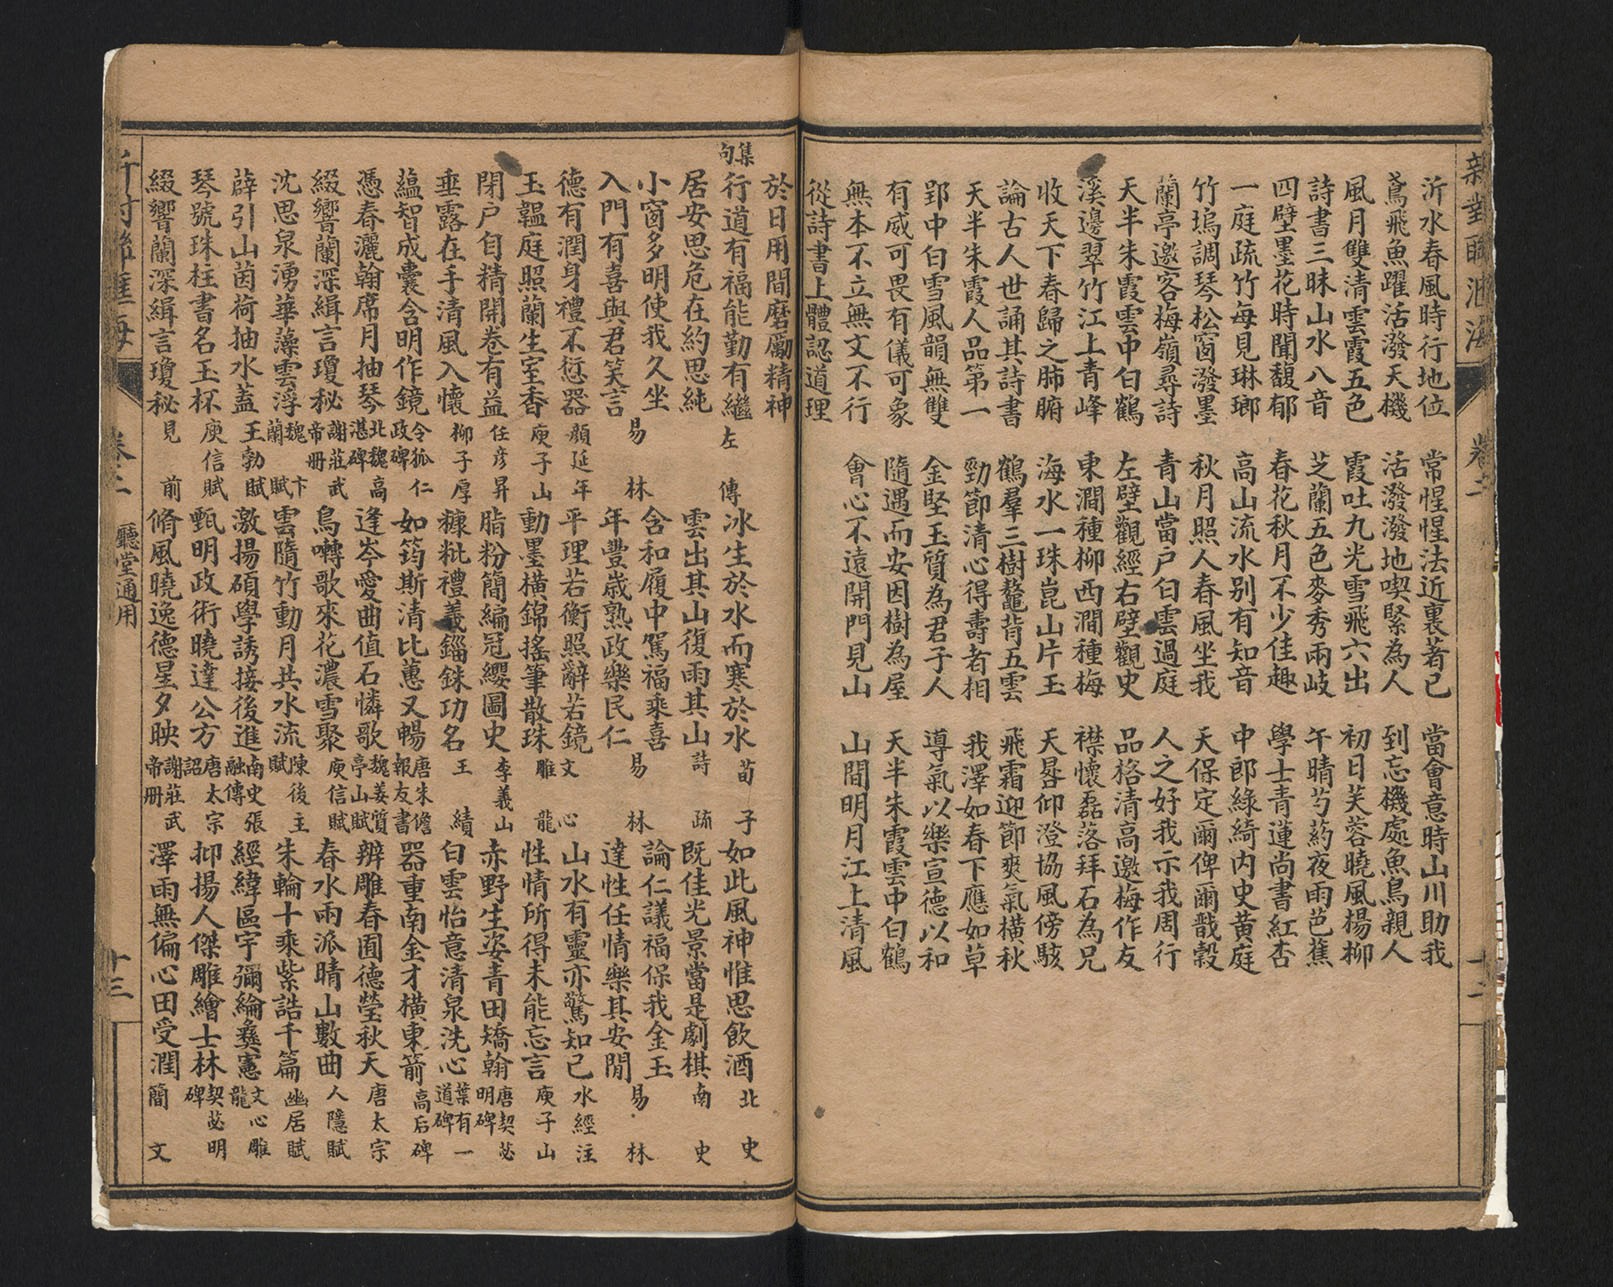 新對聯滙海 卷二 十二
沂水春風時行地位 常惺惺法近裏著己 當會意時山川助我
鳶飛魚躍活潑天機 活潑潑地喫緊為人 到忘機處魚鳥親人
風月雙清雲霞五色 霞吐九光雪飛六出 初日芙蓉曉風楊柳
詩書三昧山水八音 芝蘭五色麥秀兩岐 午晴芍葯夜雨芭蕉
四壁墨花時聞馥郁 春花秋月不少佳趣 學士青蓮尚書紅杏
一庭疏竹每見琳瑯 高山流水別有知音 中郎綠綺內史黃庭
竹塢調琴松窗潑墨 秋月照人春風坐我 天保定爾俾爾戩穀
蘭亭邀客梅嶺尋詩 青山當户白雲過庭 人之好我示我周行
天半朱霞雲中白鶴 左壁觀經右壁觀史 品格清高邀梅作友
溪邊翠竹江上青峰 東澗種柳西澗種梅 襟懷磊落拜石為兄
收天下春歸之肺腑 海水一珠崑山片玉 天晷仰澄協風傍駭
論古人世誦其詩書 鶴羣三樹鼇背五雲 飛霜迎節爽氣橫秋
天半朱霞人品第一 勁節清心得壽者相 我澤如春下應如草
郢中白雪風韻無雙 金堅玉質為君子人 導氣以樂宣德以和
有威可畏有儀可象 隨遇而安因樹為屋 天半朱霞雲中白鶴
無本不立無文不行 會心不遠開門見山 山間明月江上清風
從詩書上體認道理
於日用間磨勵精神
集句 行道有福能勤有繼 左傳 冰生於水而寒於水 荀子 如此風神惟思飲酒 北史
居安思危在約思純 雲出其山復雨其山 詩疏 既佳光景當是劇棋 南史
小窗多明使我久坐 易林 含和履中駕福乘喜 易林 論仁議福保我金玉 易林
入門有喜與君笑言 年豐歲熟政樂民仁 達性任情樂其安閒
德有潤身禮不愆器 顏延年 平理若衡照辭若鏡 文心 山水有靈亦驚知己 水經注
玉韞庭照蘭生室香 庾子山 動墨橫錦搖筆散珠 雕龍 性情所得未能忘言 庾子山
閉户自精開卷有益 任彦昇 脂粉簡編冠纓圖史 李義山 赤野生姿青田矯翰 唐契苾明碑
垂露在手清風入懷 柳子厚 糠粃禮義錙銖功名 王績 白雲怡意清泉洗心 葉有一道碑
蘊智成囊含明作鏡 令狐仁政碑 如筠斯清比蕙又暢 唐朱儋報友書 器重南金才橫東箭 高后碑
憑春灑翰席月抽琴 北魏高湛碑 逢岑愛曲值石憐歌 魏姜質亭山賦 辨雕春囿德瑩秋天 唐太宗
綴響蘭深緝言瓊秘 謝莊武帝册 鳥囀歌來花濃雪聚 庾信賦 春水兩派晴山數曲 人隱賦
沈思泉湧華藻雲浮 魏卞蘭賦 雲隨竹動月共水流 陳後主賦 朱輪十乘紫誥千篇 幽居賦
薜引山茵荷抽水蓋 王勃賦 激揚碩學誘接後進 南史張融傳 經緯區宇彌綸彝憲 文心雕龍
琴號珠柱書名玉杯 庾信賦 甄明政術曉達公方 唐太宗詔 抑揚人傑雕繪士林 契苾明碑
綴響蘭深緝言瓊秘 見前 脩風曉逸德星夕映 謝莊武帝册 澤雨無偏心田受潤 簡文
新對聯滙海 卷二 廳堂通用 十三